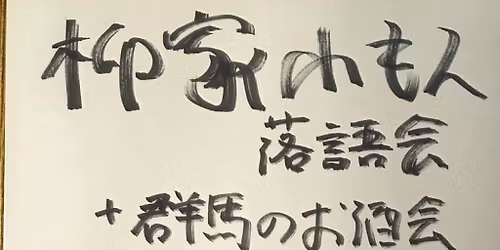 柳家れもん
落語会
+群馬のお酒会